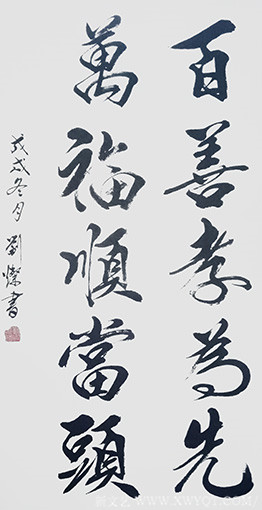 百善孝為先
萬福順當頭
戊戌冬月劉燦書